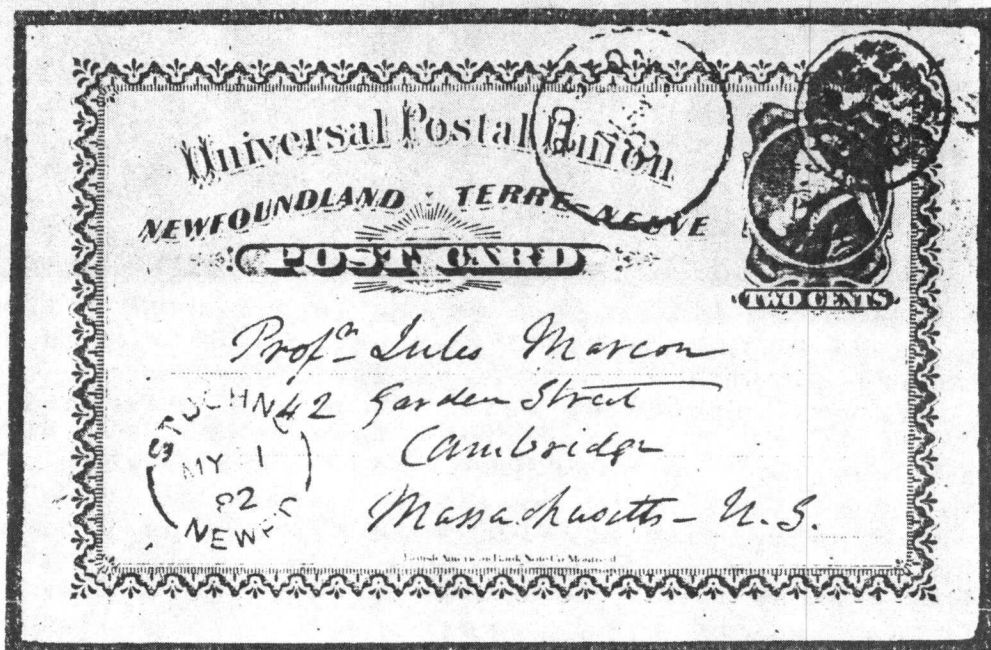 Universal Postal Union
NEWFOUNDLAND · TERRE-NEUVE
POST CARD
TWO CENTS
Profr Jules Marcou
42 Garden Street
Cambridge
Massachusetts - U.S.
ST JOHN
MY 1
82
NEWF D
British American Bank Note Co. Montreal